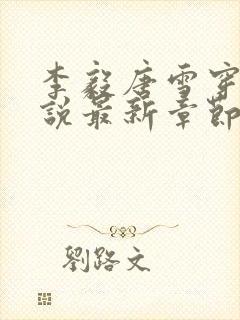 李毅唐雪穿
說最新章節
劉路文